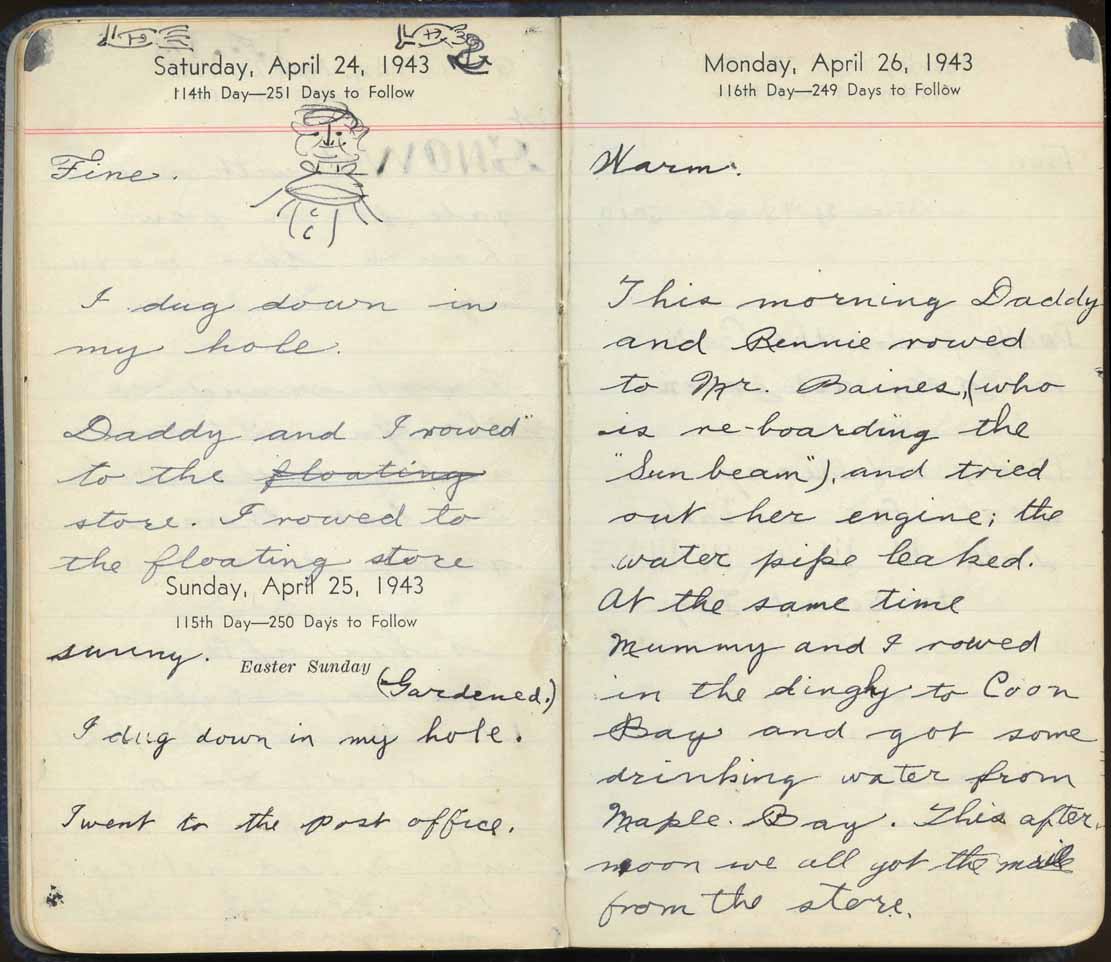 Saturday, April 24, 1943
114th Day—251 Days to Follow
Fine.
I dug down in
my hole.
Daddy and I rowed
to the floating
store. I rowed to
the floating store
Sunday, April 25, 1943
115th Day—250 Days to Follow
sunny.
Easter Sunday
(Gardened.)
I dug down in my hole.
I went to the post office.
Monday, April 26, 1943
116th Day—249 Days to Follow
Warm.
This morning Daddy
and Rennie rowed
to Mr. Baines, (who
is re-boarding the
"Sunbeam"), and tried
out her engine; the
water pipe leaked.
At the same time
Mummy and I rowed
in the dinghy to Coon
Bay and got some
drinking water from
Maple Bay. This after-
noon we all got the mail
from the store.